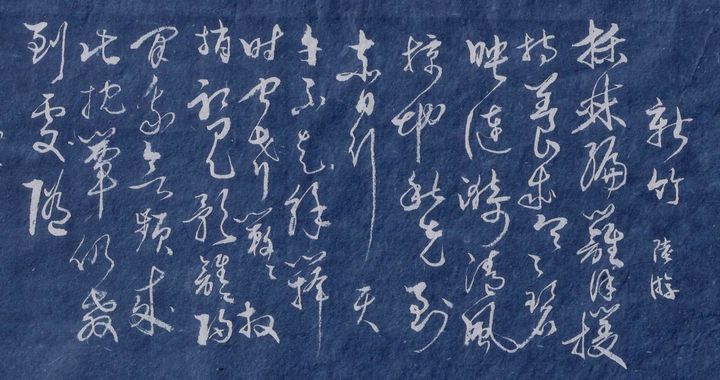 新竹 陸游
插棘編籬謹護
持養成寒碧
映漣漪清風
掠地秋先到
赤日行天
午不知解籜
时闻声簌〻放
梢初見影離〻歸
閒我欲頻來
此枕簟仍教
到處隨